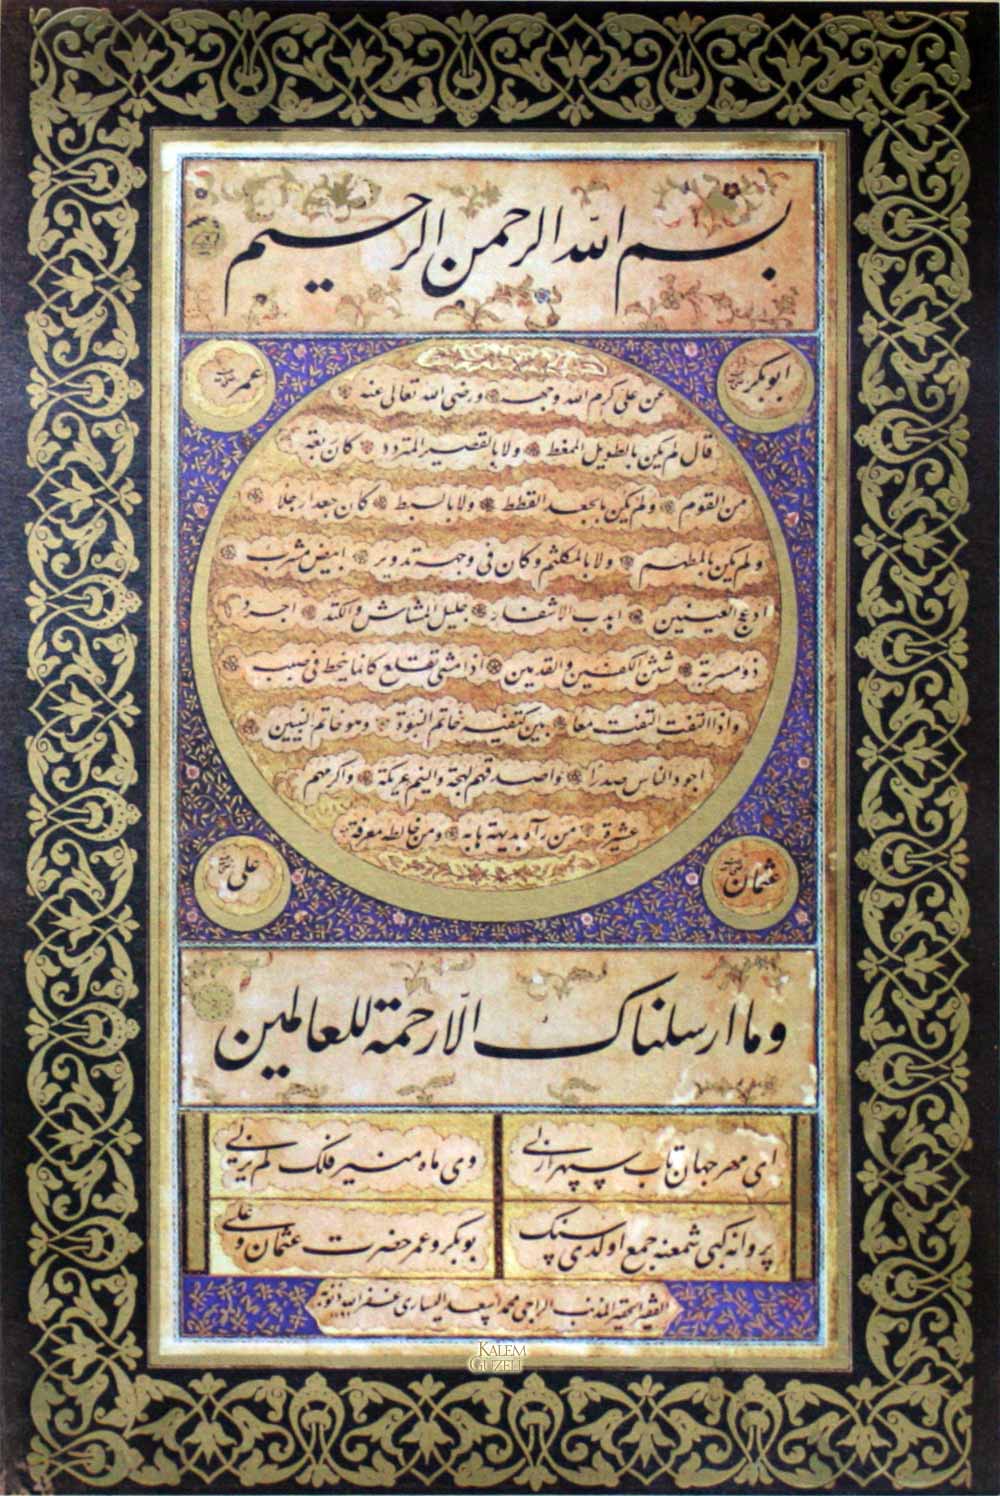 بسم الله الرحمن الرحيم
ابوبكر
عمر
عن علی کرم الله وجهه ورضی الله تعالی عنه
قال لم یکن بالطویل الممغط ولا بالقصیر المتردد کان ربعة
من القوم ولم یکن بالجعد القطط ولا بالسبط کان جعدا رجلا
ولم یکن بالمطهم ولا بالمکلثم وکان فی وجهه تدویر ابیض مشرب
ادعج العینین اهدب الاشفار جلیل المشاش والکتد اجرد
ذو مسربة شثن الکفین والقدمین اذا مشی تقلع کانما ینحط فی صبب
واذا التفت التفت معا بین کتفیه خاتم النبوة وهو خاتم النبیین
اجود الناس صدرا واصدقهم لهجة والینهم عریکة واکرمهم
عشرة من رآه بدیهة هابه ومن خالطه معرفة
عثمان
علی
وما ارسلناک الا رحمة للعالمین
ای مهر جهان تاب سپهر ازلی
وی ماه منیر فلک لم یزلی
پروانه کبی شمعنه جمع اولدی سنک
بوبکر و عمر حضرت عثمان و علی
الفقیر الحقیر المذنب الراجی محمد اسعد الیساری غفر الله ذنوبه
KALEM
GÜZELİ